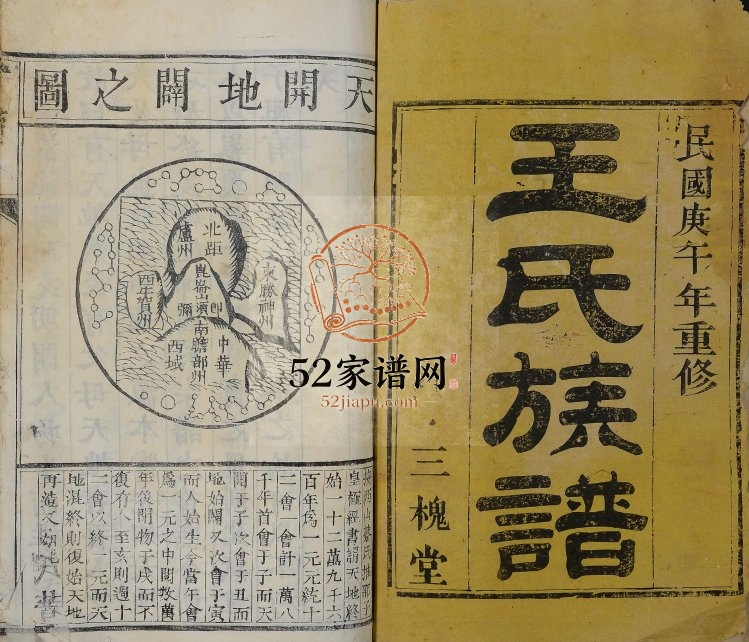 民國庚午年重修
王氏族譜
三槐堂
天開地闢之圖
北距
盧州
東勝神州
崑崙山須
即
彌
西牛賀州
南瞻部州
中華
西域
按西山蔡氏推邵子
皇極經書謂天地終
始一十二萬九千六
百年爲一元元統十
二會一會計一萬八
千年首會于子而天
開于子次會于丑而
地始闢又次會于寅
而人始生今當午會
爲一元之中閱數萬
年後閉物于戌而不
復有人至亥則週十
二會以終一元而天
地混終則復始天地
再造又
52家谱网
52jiapu.com